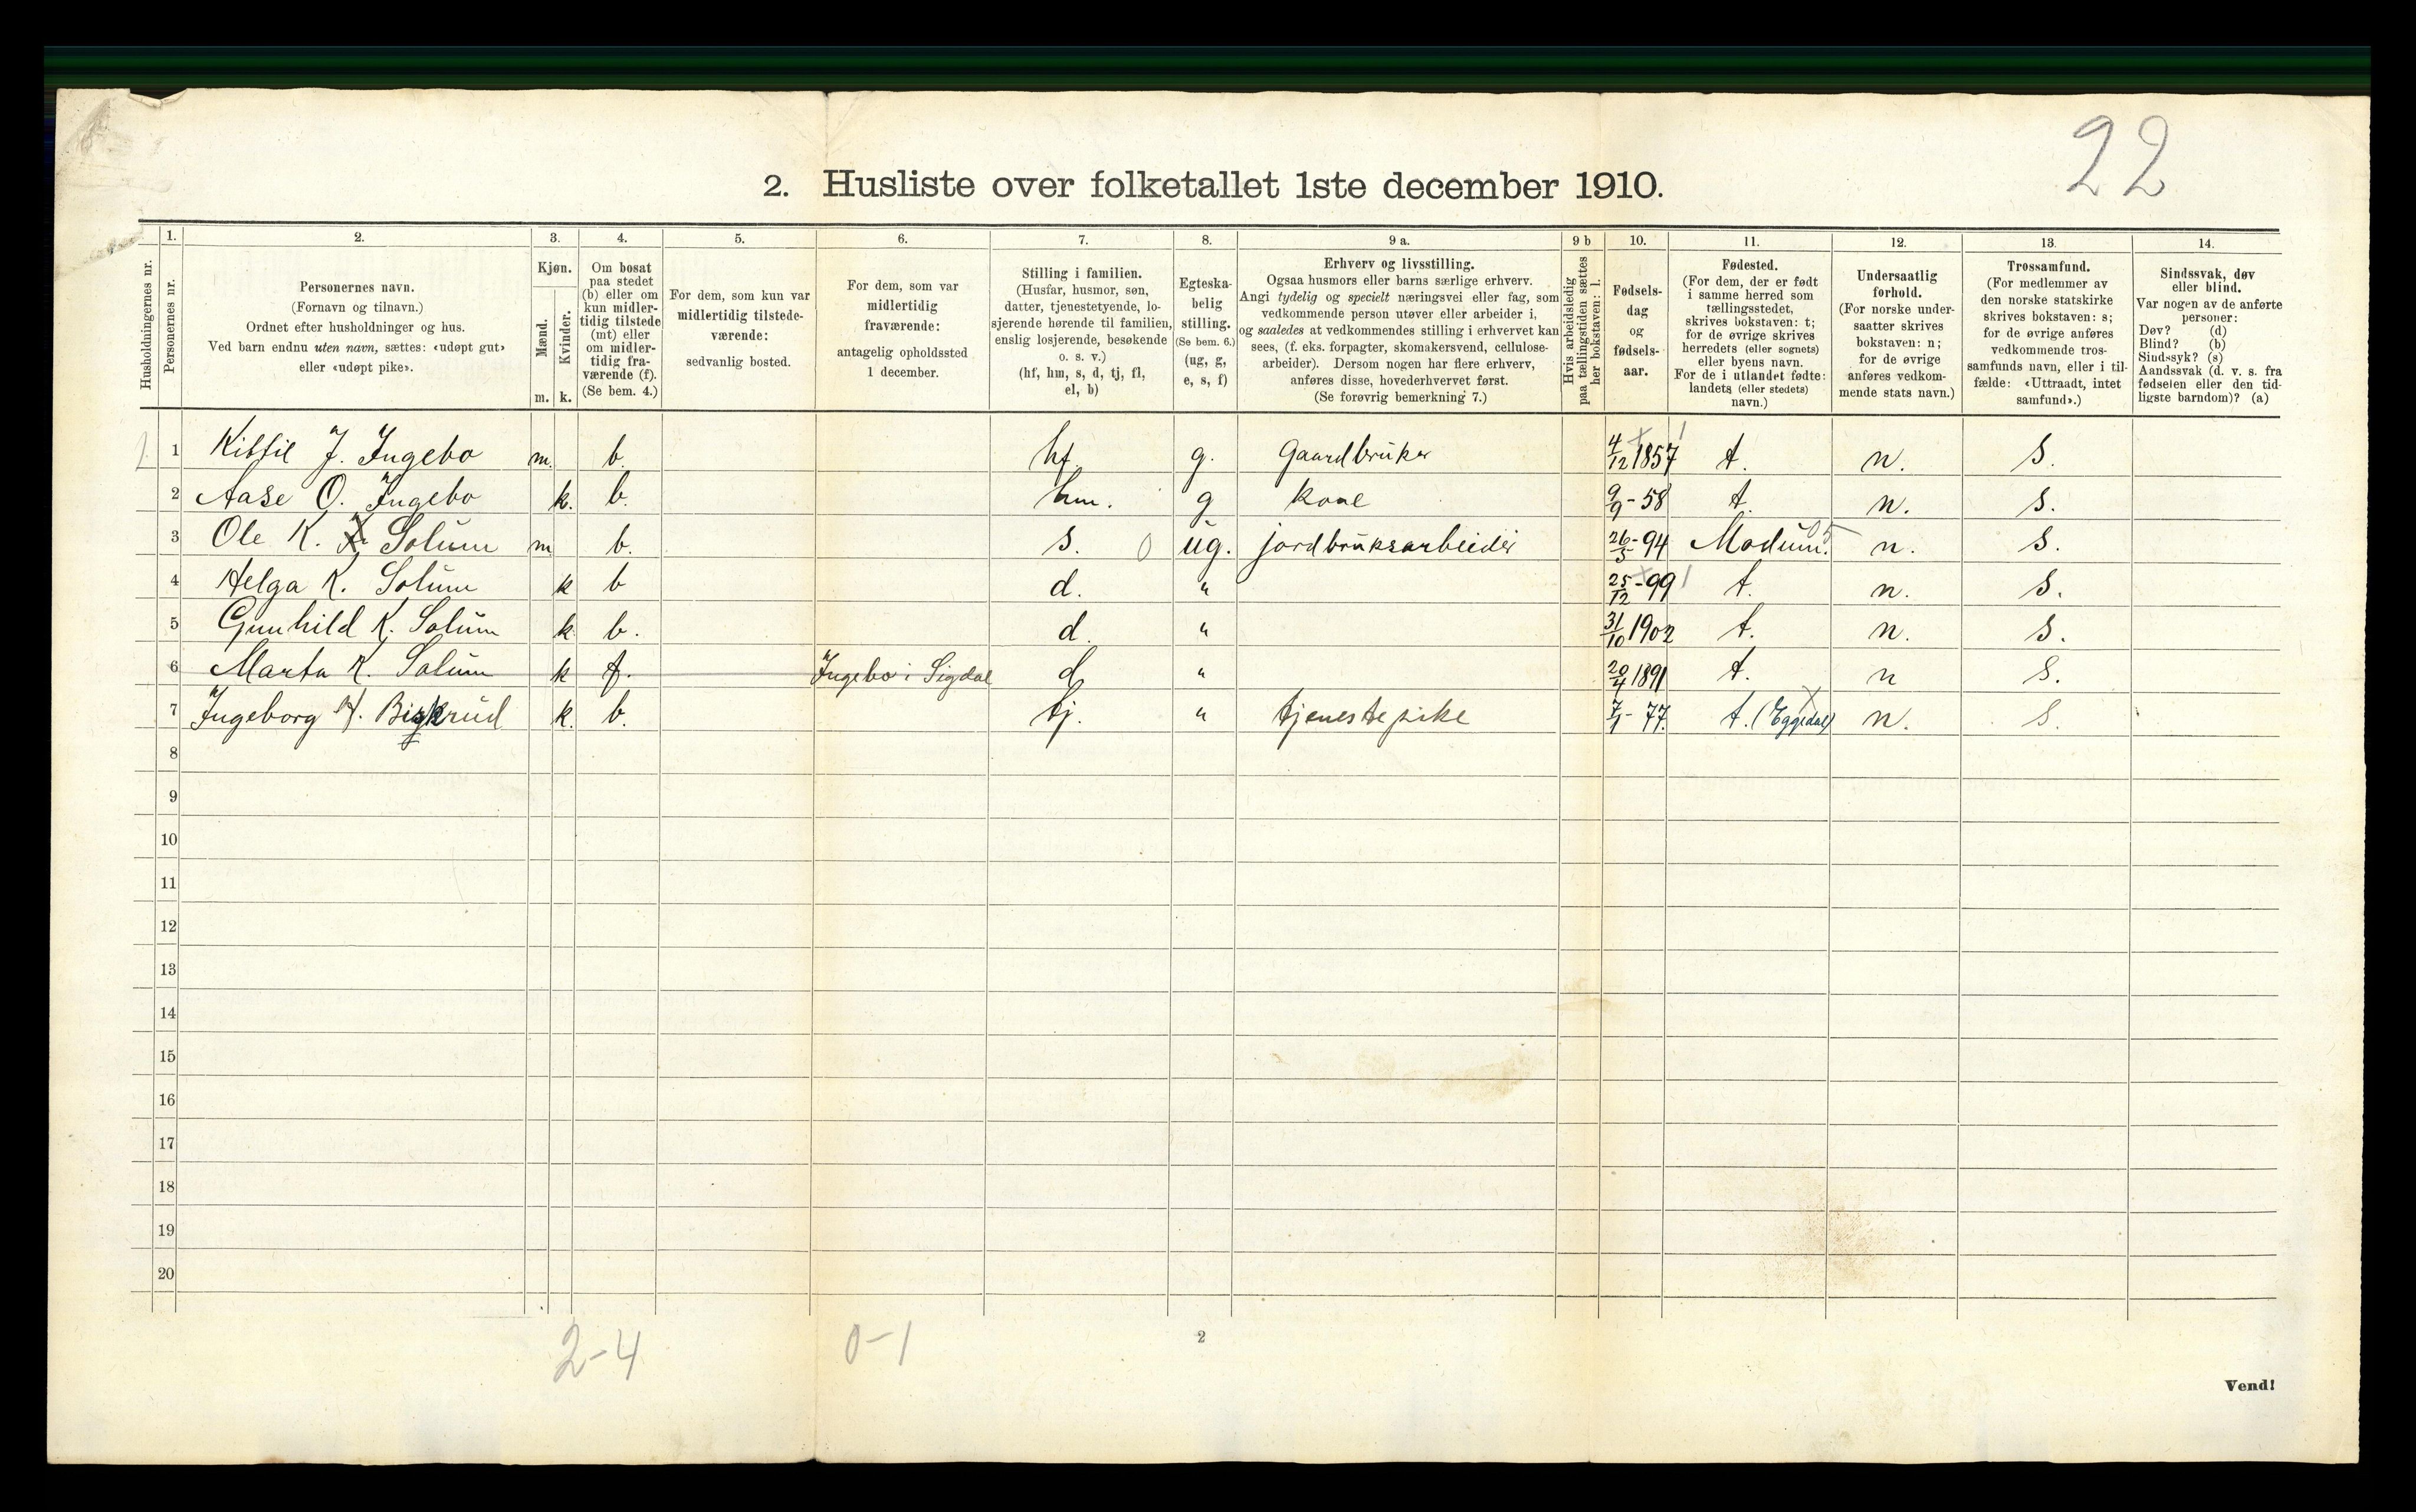 22
2. Husliste over folketallet 1ste december 1910.
Husholdningernes nr.
1.
Personernes nr.
2.
Personernes navn.
(Fornavn og tilnavn.)
Ordnet efter husholdninger og hus.
Ved barn endnu uten navn, sættes: «udøpt gut»
eller «udøpt pike».
3.
Kjøn.
Mænd.
Kvinder.
m. k.
4.
Om bosat
paa stedet
(b) eller om
kun midler-
tidig tilstede
(mt) eller
om midler-
tidig fra-
værende (f).
(Se bem. 4.)
5.
For dem, som kun var
midlertidig tilstede-
værende:
sedvanlig bosted.
6.
For dem, som var
midlertidig
fraværende:
antagelig opholdssted
1 december.
7.
Stilling i familien.
(Husfar, husmor, søn,
datter, tjenestetyende, lo-
sjerende hørende til familien,
enslig losjerende, besøkende
o. s. v.)
(hf, hm, s, d, tj, fl,
el, b)
8.
Egteska-
belig
stilling.
(Se bem. 6.)
(ug, g,
e, s, f)
9 a.
Erhverv og livsstilling.
Ogsaa husmors eller barns særlige erhverv.
Angi tydelig og specielt næringsvei eller fag, som
vedkommende person utøver eller arbeider i,
og saaledes at vedkommendes stilling i erhvervet kan
sees, (f. eks. forpagter, skomakersvend, cellulose-
arbeider). Dersom nogen har flere erhverv,
anføres disse, hovederhvervet først.
(Se forøvrig bemerkning 7.)
9 b
Hvis arbeidsledig
paa tællingstiden sættes
her bokstaven: l.
10.
Fødsels-
dag
og
fødsels-
aar.
11.
Fødested.
(For dem, der er født
i samme herred som
tællingsstedet,
skrives bokstaven: t;
for de øvrige skrives
herredets (eller sognets)
eller byens navn.
For de i utlandet fødte:
landets (eller stedets)
navn.)
12.
Undersaatlig
forhold.
(For norske under-
saatter skrives
bokstaven: n;
for de øvrige
anføres vedkom-
mende stats navn.)
13.
Trossamfund.
(For medlemmer av
den norske statskirke
skrives bokstaven: s;
for de øvrige anføres
vedkommende tros-
samfunds navn, eller i til-
fælde: «Uttraadt, intet
samfund».)
14.
Sindssvak, døv
eller blind.
Var nogen av de anførte
personer:
Døv? (d)
Blind? (b)
Sindssyk? (s)
Aandssvak (d. v. s. fra
fødselen eller den tid-
ligste barndom)? (a)
1 1 Kittil J. Ingebo m. b. hf. g. gaardbruker 4/12 1857 t. n. s.
2 Aase O. Ingebo k. b. hm. g kone 9/9 - 58 t. n. s.
3 Ole K. Solum m. b. s. 0 ug. jordbruksarbeider 26/5 - 94 Modum. n. s.
4 Helga K. Solum k b d. " 25/12 - 99 t. n. s.
5 Gunhild K. Solum k b. d. " 31/10 1902 t. n. s.
6 Marta K. Solum k f. Ingebo i Sigdal d " 20/4 1891 t. n s.
7 Ingeborg H. k. b. tj. " tjenestepike 7/1 - 77. t. (Eggedal) n. s.
8
9
10
11
12
13
14
15
16
17
18
19
20
2-4 0-1
2
Vend!